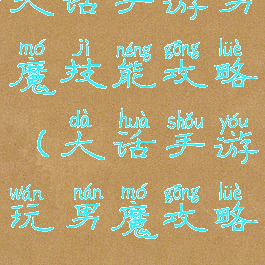 大话手游男
mó jì néng gōng lüè
魔技能攻略
dà huà shǒu yóu
（大话手游
wán nán mó gōng lüè
玩男魔攻略